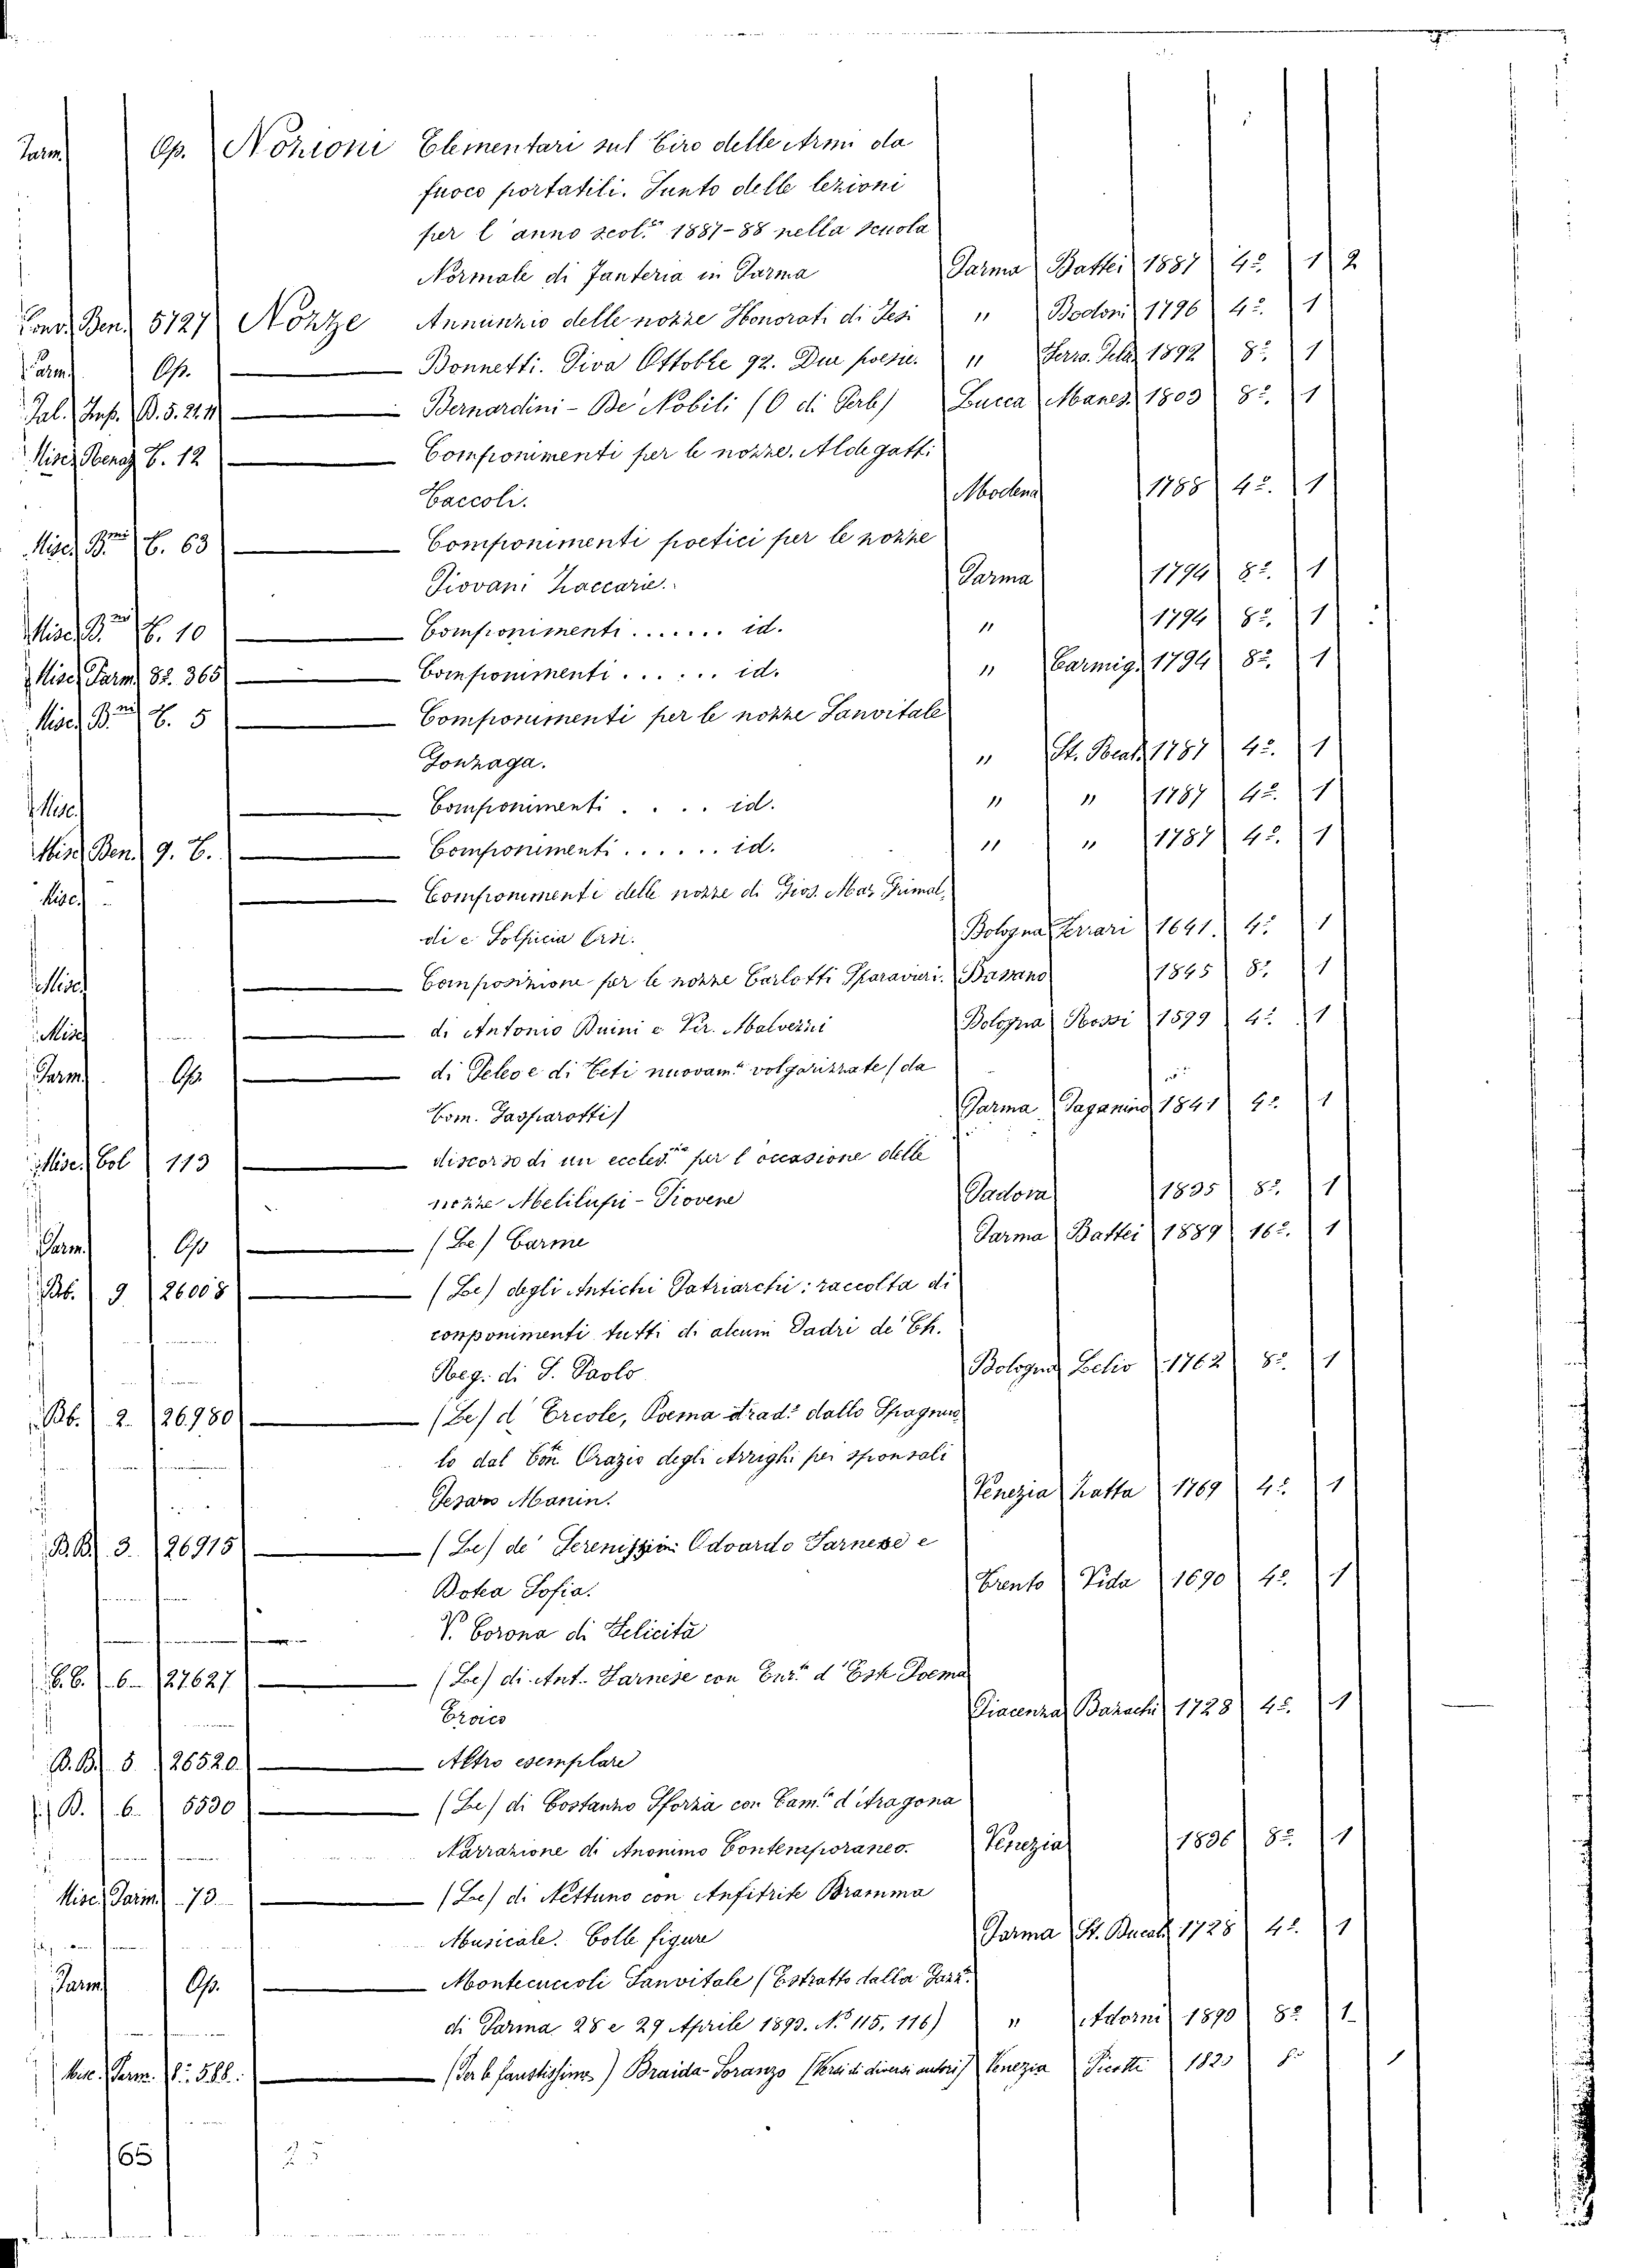 Parm. Op. Nozioni Elementari sul Tiro delle Armi da
fuoco portatili. Sunto delle lezioni
per l'anno scol.º 1887-88 nella scuola
Normale di Fanteria in Parma Parma Battei 1887 4º. 1 2
Cons. Ben. 5727 Nozze Annunzio delle nozze Honorati di Jesi " Bodoni 1796 4º. 1
Parm. Op. Bonnetti. Diva Ottobre 92. Due poesie. " Ferr. 1892 8º. 1
Pal. Imp. B. 5. 21. 11 Bernardini - De' Nobili (O di Serb) Lucca Mares. 1803 8º. 1
Misc. Henaz C. 12 Componimenti per le nozze Aldegatti
Caccoli. Modena 1788 4º. 1
Misc. B.mi C. 63 Componimenti poetici per le nozze
Giovani Zaccarie. Parma 1794 8º. 1
Misc. B.mi C. 10 Componimenti . . . . . . . id. " 1794 8º. 1
Misc. Parm. 8º. 365 Componimenti . . . . . . id. " Carmig. 1794 8º. 1
Misc. B.ni C. 5 Componimenti per le nozze Sanvitale
Gonzaga. " St. Reale 1787 4º. 1
Misc. Componimenti . . . . id. " " 1787 4º. 1
Misc. Ben. 9. C. Componimenti . . . . . . id. " " 1787 4º. 1
Misc. Componimenti delle nozze di Gios. Mar. Grimal,
di e Solpicia Orsi. Bologna Ferrari 1641. 4º 1
Misc. Composizione per le nozze Carlotti Sparavieri. Bassano 1845 8º. 1
Misc. di Antonio Buini e Vir. Malvezzi Bologna Rossi 1599 4º. 1
Parm. Op. di Peleo e di Teti nuovam.e volgarizzate (da
Tom. Gasparotti) Parma Paganino 1841 4º. 1
Misc. Col 113 discorso di un eccles.co per l'occasione delle
nozze Melilupi - Piovene Padova 1835 8º. 1
Parm. Op (Le) Carme Parma Battei 1889 16º. 1
Bb. 9 26008 (Le) degli Antichi Patriarchi: raccolta di
conponimenti tutti di alcuni Padri de' Ch.
Reg. di S. Paolo Bologna Lelio 1762 8º. 1
Bb. 2. 26980 (Le) d'Ercole, Poema trad.º dallo Spagnuo,
lo dal Con. Orazio degli Arrighi per sponsali
Pesaro Manin. Venezia Zatta 1769 4º. 1
B.B. 3. 26915 (Le) de' Serenissimi Odoardo Farnese e
Dotea Sofia. Trento Vida 1690 4º. 1
V. Corona di Felicità
C.C. 6 27627 (Le) di Ant. Farnese con Enr.ª d'Este Poema
Eroico Piacenza Bazachi 1728 4º. 1
B.B. 5 26520. Altro esemplare
B. 6. 5530 (Le) di Costanzo Sforza con Cam.ª d'Aragona
Narrazione di Anonimo Contemporaneo. Venezia 1836 8º. 1
Misc. Parm. 73 (Le) di Nettuno con Anfitrite Dramma
Musicale. Colle figure Parma St. Ducale 1728 4º. 1
Parm. Op. Montecuccoli Sanvitale (Estratto dalla Gazz.ª
di Parma 28 e 29 Aprile 1890. Nº 115, 116) " Adorni 1890 8º 1
Misc. Parm. 8º. 588. (Per le faustissime) Braida-Soranzo (Versi di diversi autori) Venezia Picotti 1820 8º 1
65 25